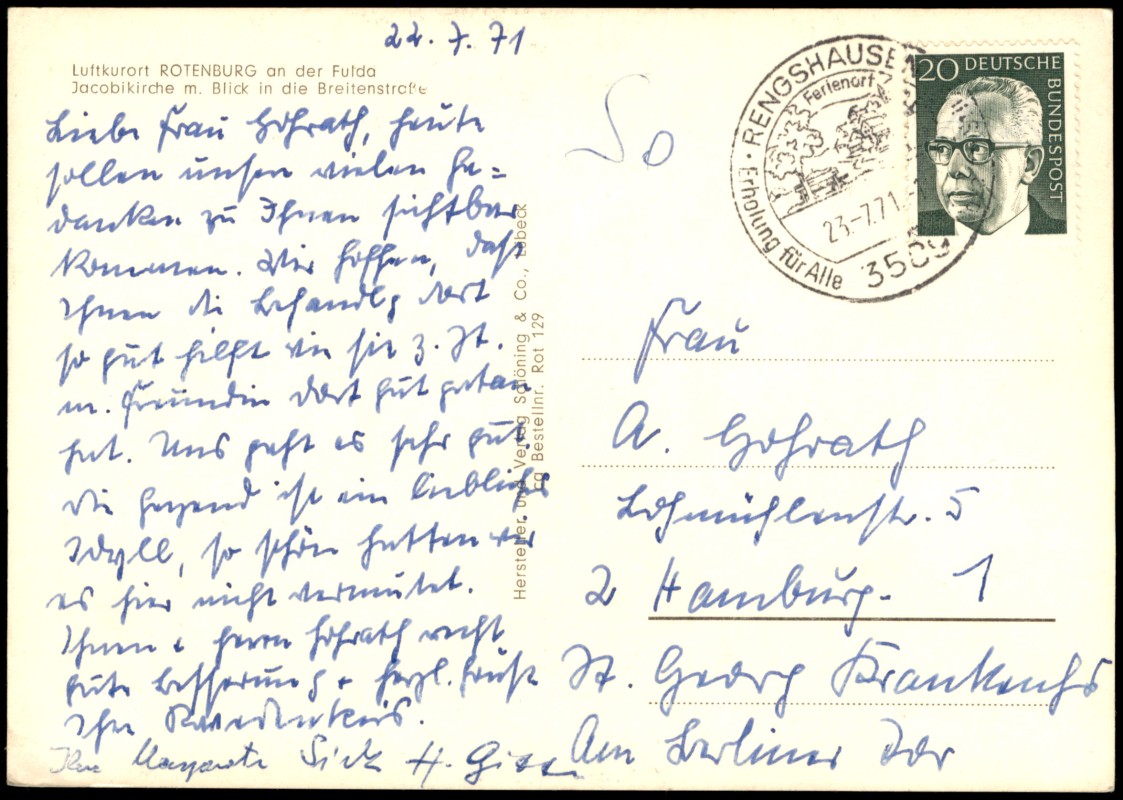 22.7.71
Luftkurort ROTENBURG an der Fulda
Jacobikirche m. Blick in die Breitenstraße
Liebe Frau Gohrath, heute
sollen unsere vielen Ge=
danken zu Ihnen sichtbar
kommen. Wir hoffen, daß
Ihnen die Behandlg dort
so gut hilft wie sie z. Zt.
m. Freundin dort gut getan
hat. Uns geht es sehr gut.
Die Gegend ist ein liebliches
Idyll, so schön hatten wir
es hier nicht vermutet.
Ihnen + Herrn Gohrath recht
gute Besserung + herzl. Grüße
Ihre
Ihre Margarete
Hersteller und Verlag Schöning & Co., Lübeck
Bestellnr. Rot 129
So
RENGSHAUSEN
Ferienort
23.-7.71
Erholung für Alle
3509
20 DEUTSCHE
BUNDESPOST
Frau
A. Gohrath
Lohmühlenstr. 5
2 Hamburg - 1
St. Georg Krankenhs
Am Berliner Tor